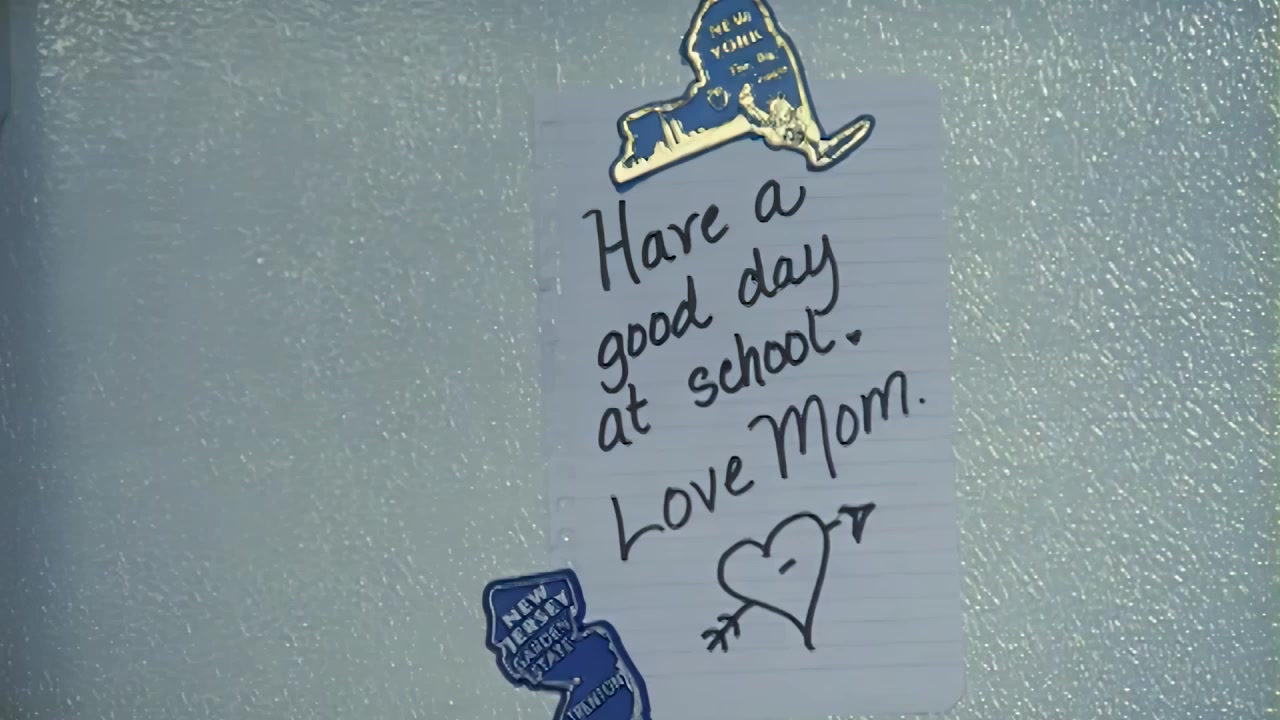 NEW
YORK
The Big
Have a
good day
at school.
Love Mom.
NEW
JERSEY
GARDEN
STATE